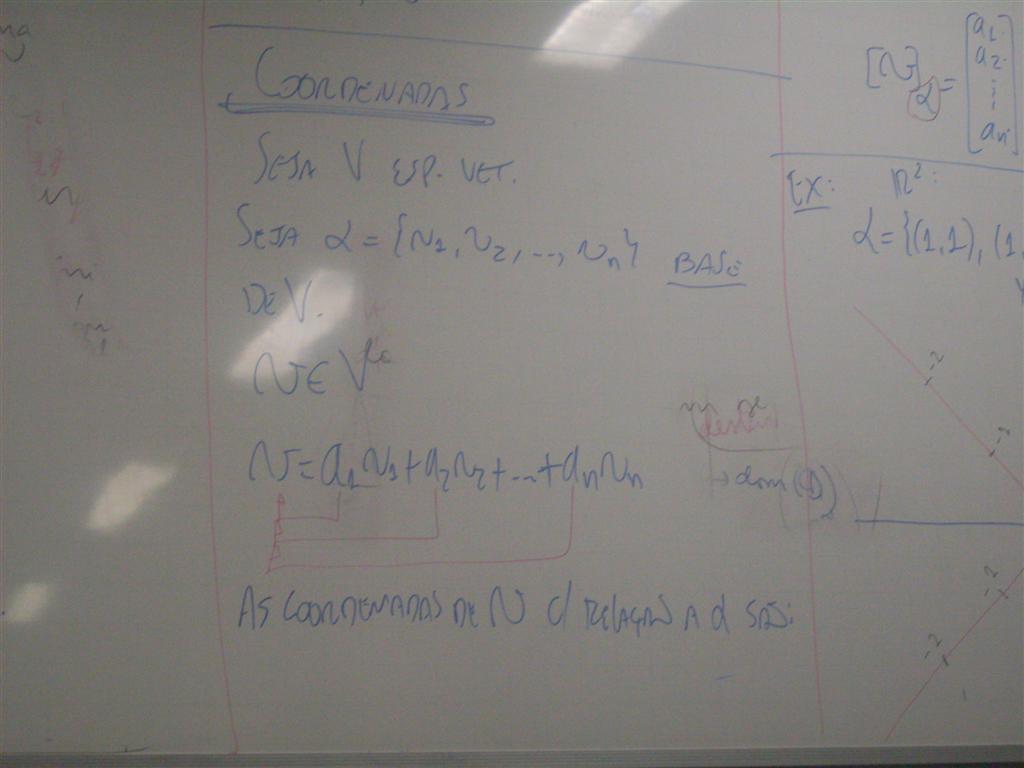 COORDENADAS
SEJA V ESP. VET.
SEJA α = {v1, v2, ..., vn} BASE
DE V.
v ∈ V
v = a1v1 + a2v2 + ... + anvn
AS COORDENADAS DE v C/ RELAÇÃO A α SÃO:
[v]α = [a1
a2
⋮
an]
EX: R²:
α = {(1,1), (1,
-2
-1
-2
-2